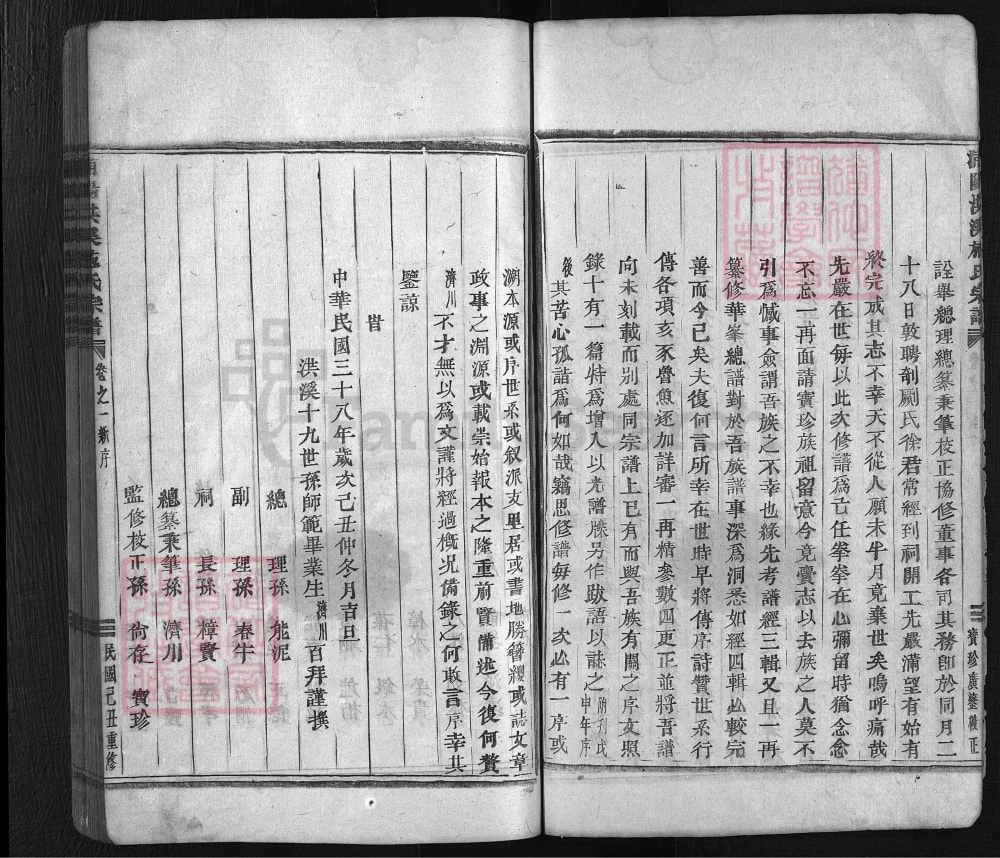 洪溪施氏宗譜
詮舉總理總纂秉筆校正協修董事各司其務卽於同月二
十八日敦聘剞劂氏徐君常經到祠開工先嚴滿望有始有
終完成其志不幸天不從人願未半月竟棄世矣嗚呼痛哉
先嚴在世每以此次修譜爲亡任拳拳在心彌留時猶念念
不忘一再面請寶珍族祖留意今竟賷志以去族之人莫不
引爲憾事僉謂吾族之不幸也緣先考譜經三輯又且一再
纂修華峯總譜對於吾族譜事深爲洞悉如經四輯必較完
善而今已矣夫復何言所幸在世時早將傳序詩贊世系行
傳各項亥豕魯魚逐加詳審一再精參數四更正並將吾譜
向未刻載而別處同宗譜上已有而與吾族有關之序文照
錄十有一篇特爲增入以光譜牒另作跋語以誌之附刊戊申年序
後其苦心孤詣爲何如哉竊思修譜每修一次必有一序或
寶珍廣鎏校正
溯本源或序世系或叙派支里居或書地勝簪纓或誌文章
政事之淵源或載崇始報本之隆重前賢備述今復何贅
濟川不才無以爲文謹將經過概况備錄之何敢言序幸其
鑒諒
旹
中華民國三十八年歲次己丑仲冬月吉旦
洪溪十九世孫師範畢業生濟川百拜謹撰
總理孫能泥
副理孫春牛
祠長孫樟賢
總纂秉筆孫濟川
監修校正孫尙存寶珍
洪溪施氏宗譜 卷之一 新序 民國己丑重修